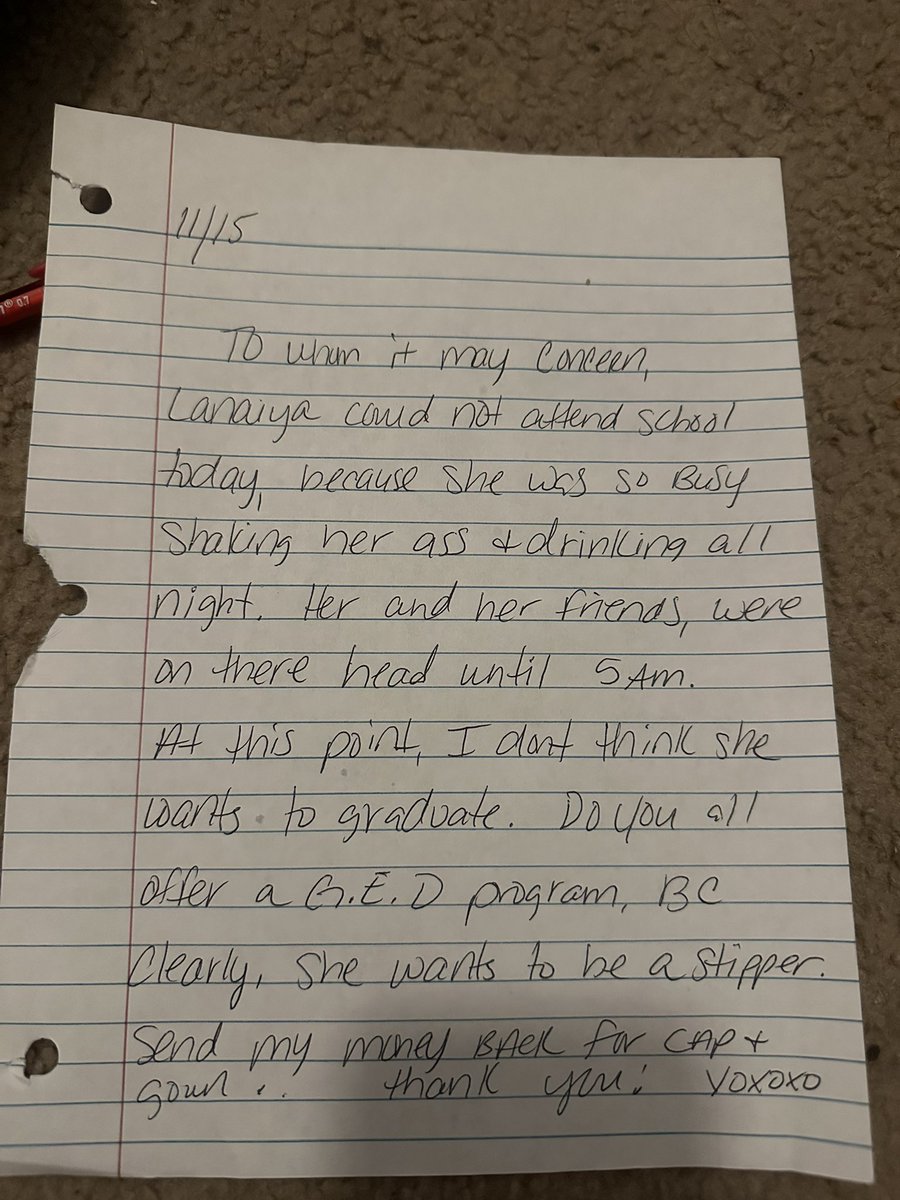 11/15
To whom it may Concern,
Lanaiya could not attend school
today, because she was so Busy
Shaking her ass & drinking all
night. Her and her friends, were
on there head until 5 Am.
At this point, I dont think she
wants to graduate. Do you all
offer a G.E.D program, BC
Clearly, She wants to be a stipper.
Send my money BACK for CAP &
gown.. thank you! YOXOXO
0.7